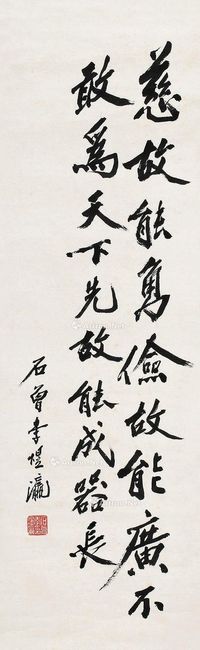 慈故能勇儉故能廣不
敢爲天下先故能成器長
石曾李煜瀛